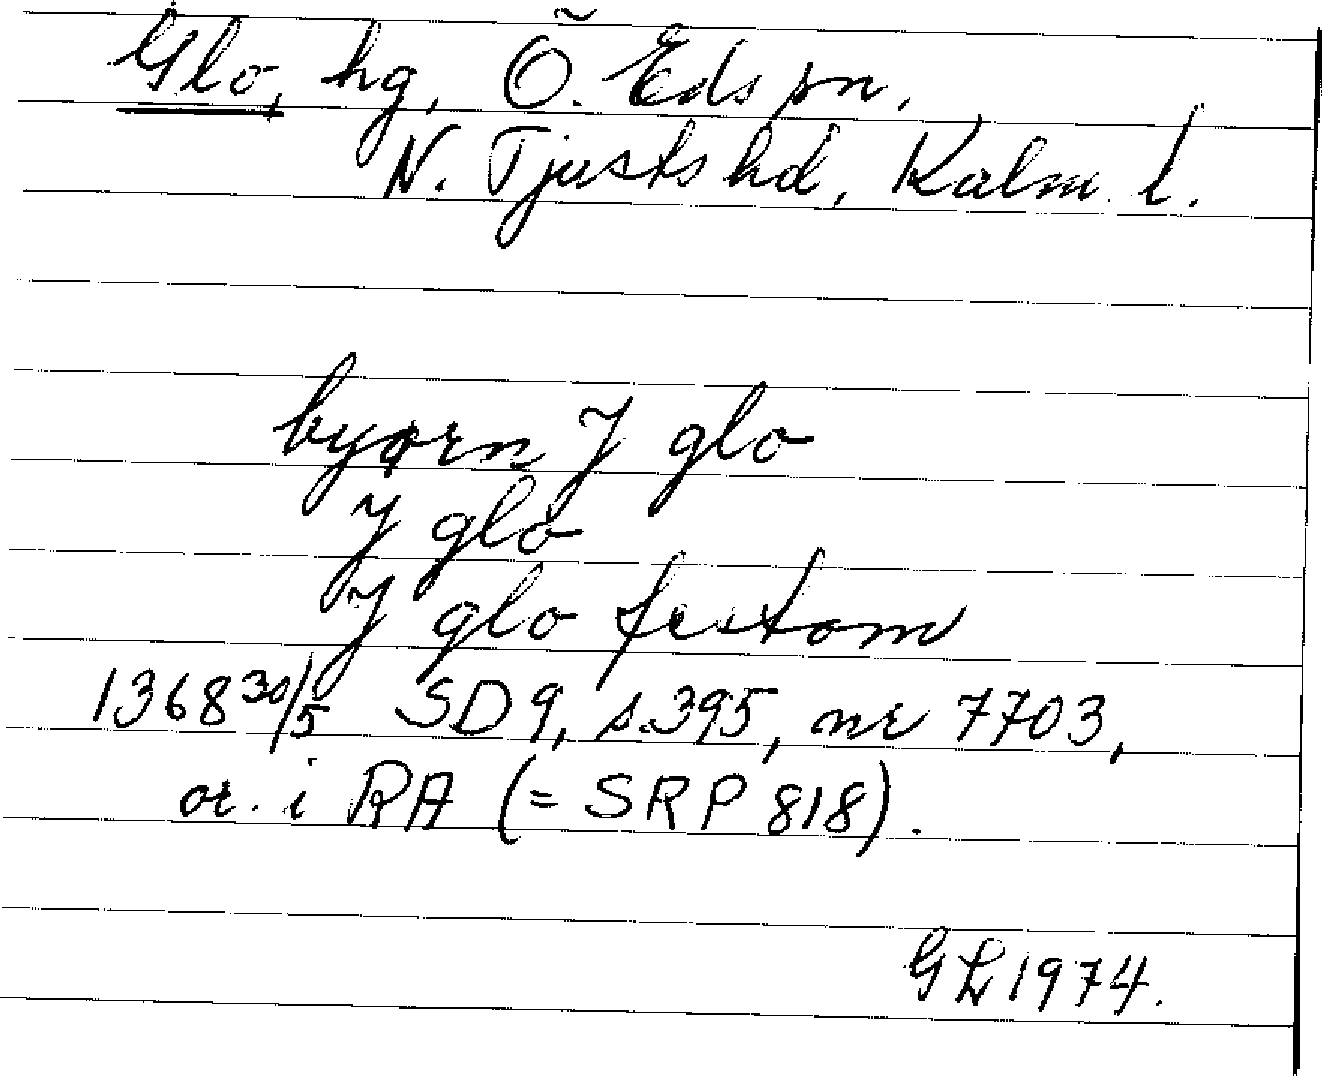 Glo, hg, Ö. Eds sn,
N. Tjusts hd, Kalm. l.
byørn J glo
J glo
J glo festom
1368 30/5 SD 9, s. 395, nr 7703,
or. i RA (= SRP 818).
GL 1974.